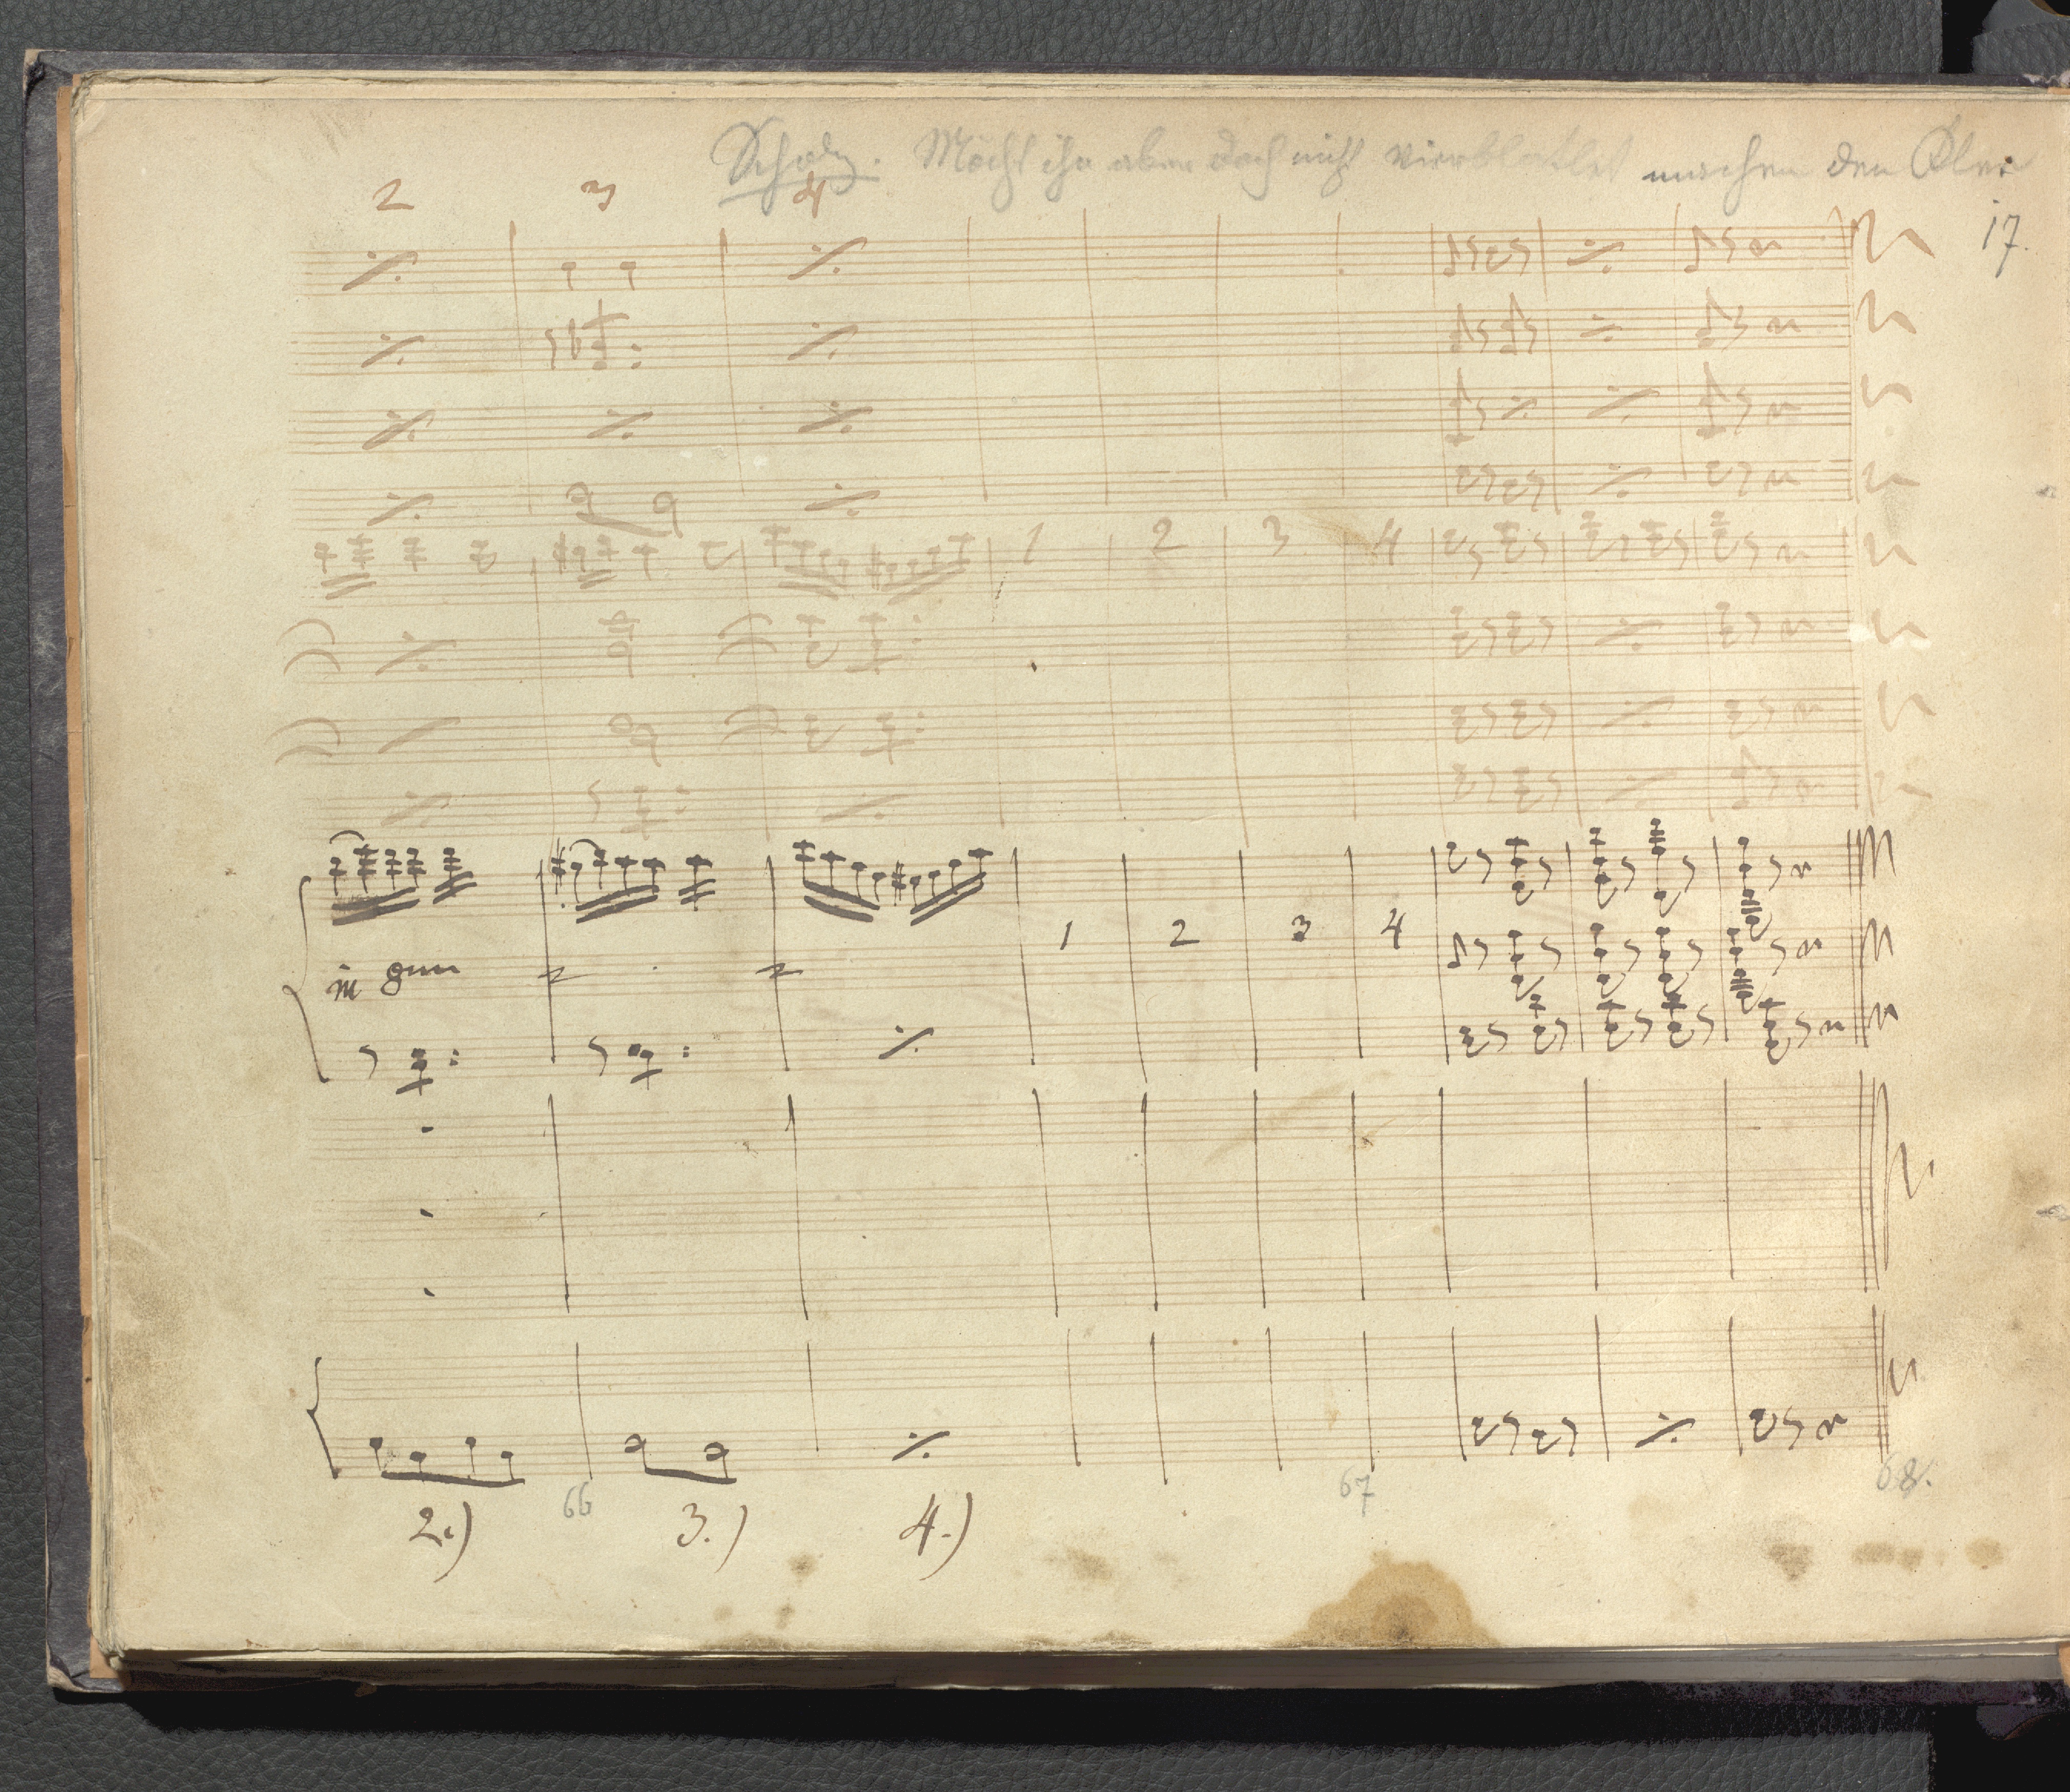 Scholz. Möcht ihn aber doch nicht machen den
2 3 4
17.
1 2 3 4
1 2 3 4
in 8va
66 67 68.
2.) 3.) 4.)